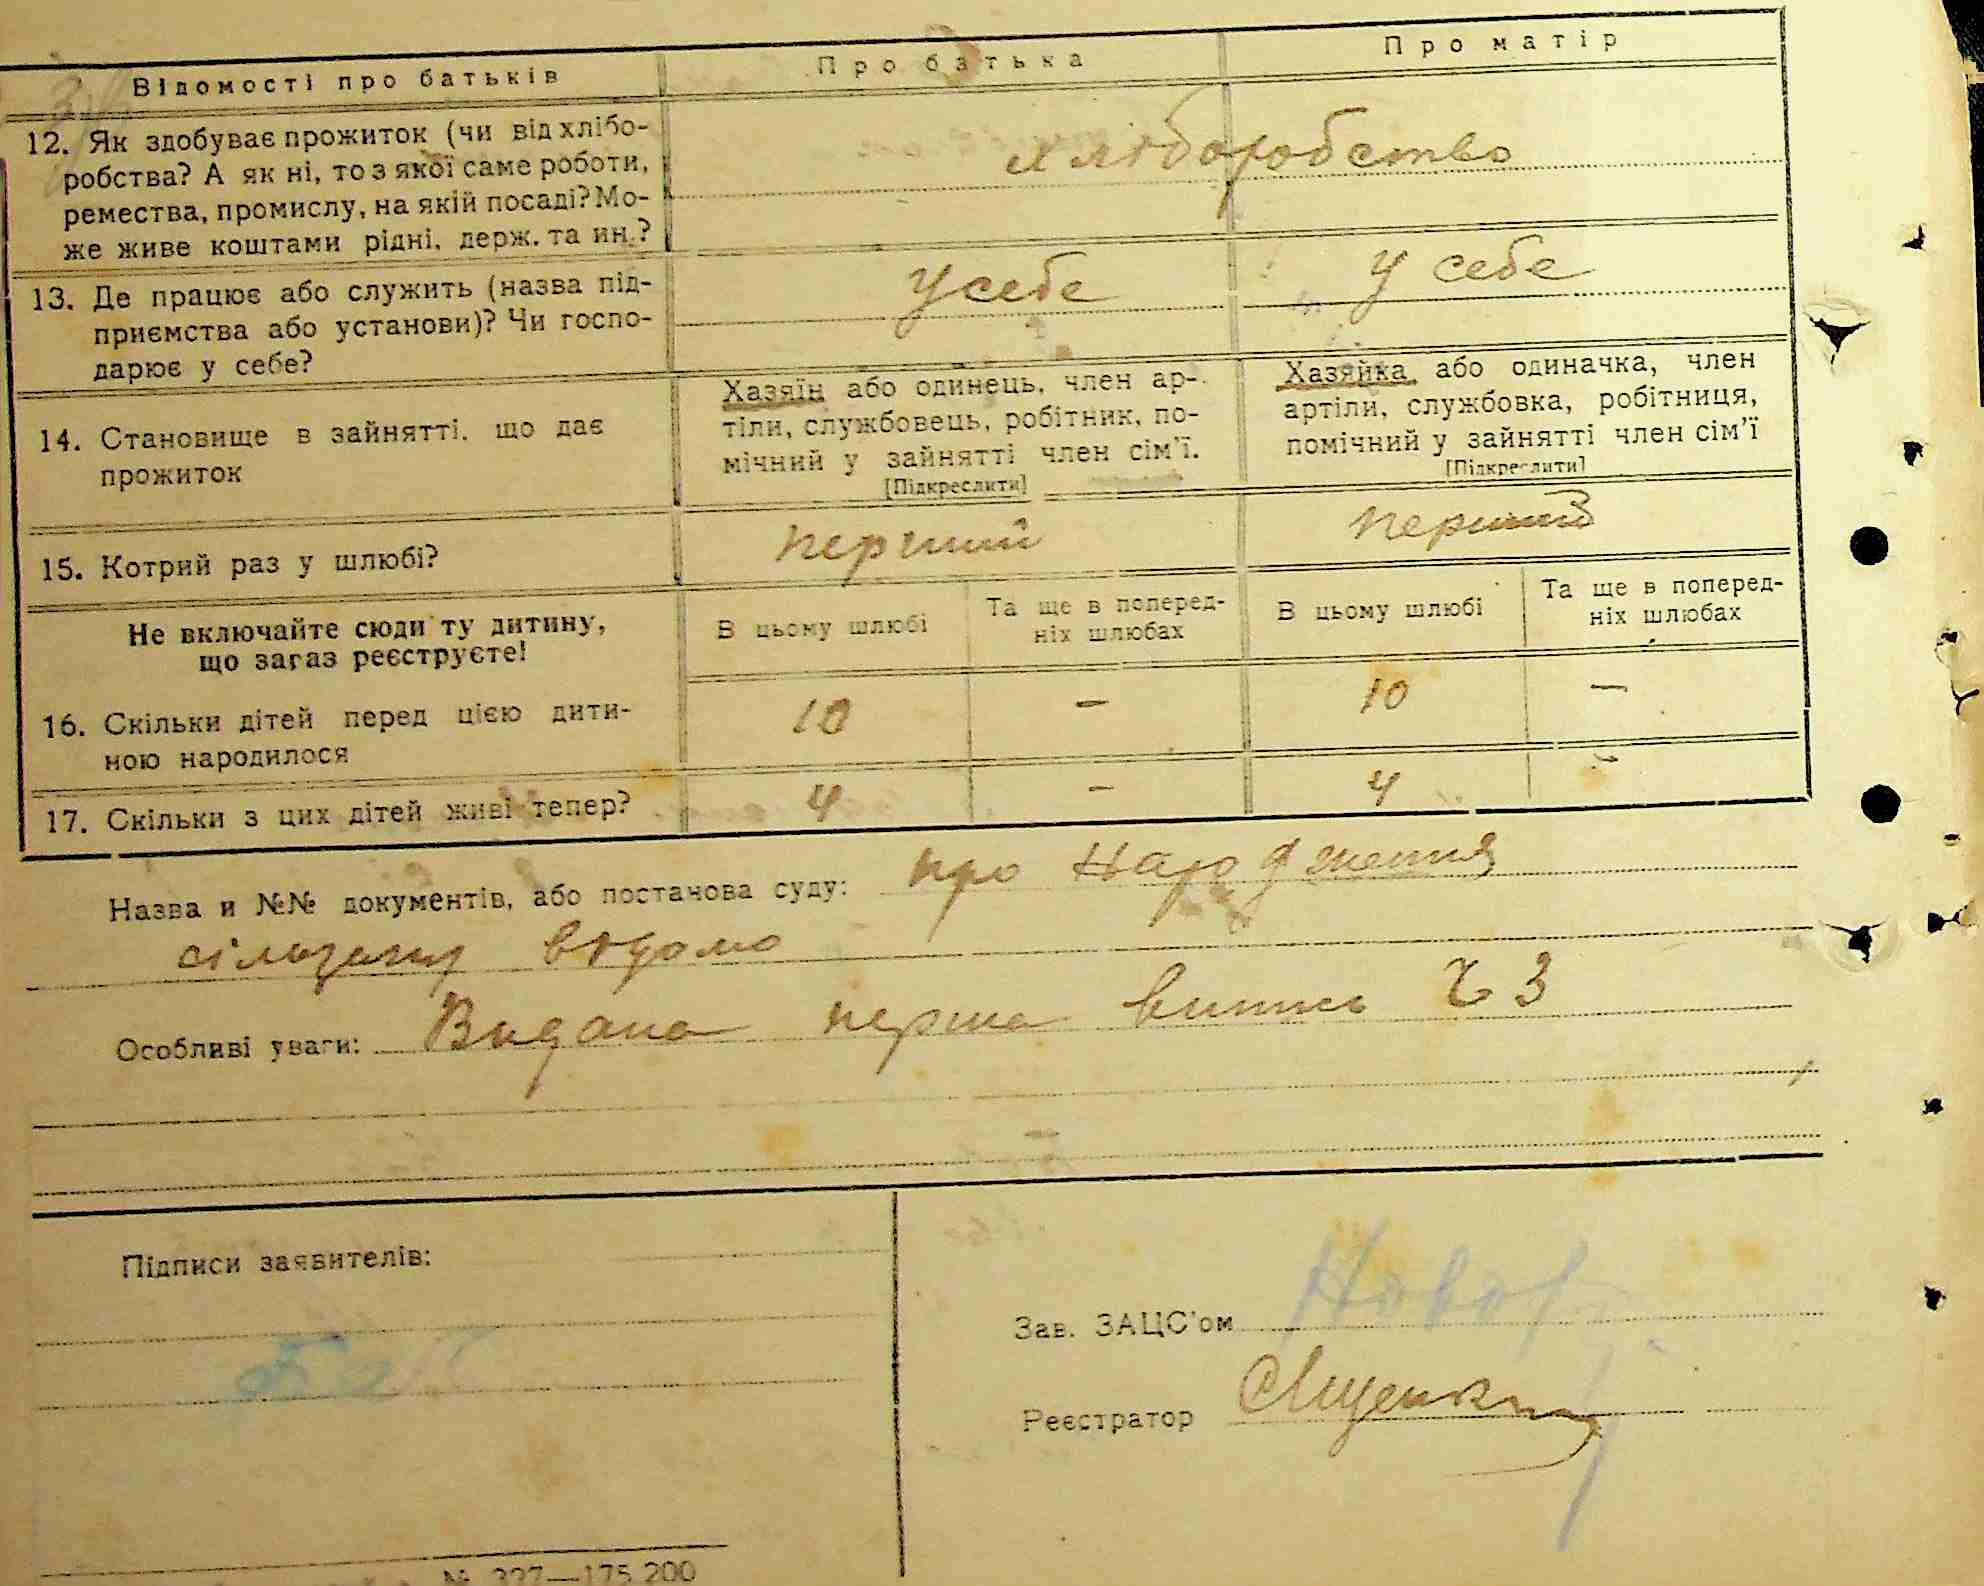 Відомості про батьків Про батька Про матір
12. Як здобуває прожиток (чи від хлібо-
робства? А як ні, то з якої саме роботи,
ремества, промислу, на якій посаді? Мо-
же живе коштами рідні, держ. та ин.?
хліборобство
13. Де працює або служить (назва під-
приємства або установи)? Чи госпо-
дарює у себе?
У себе
У себе
14. Становище в зайнятті, що дає
прожиток
Хазяїн або одинець, член ар-
тіли, службовець, робітник, по-
мічний у зайнятті член сім'ї.
[Підкреслити]
Хазяйка або одиначка, член
артіли, службовка, робітниця,
помічний у зайнятті член сім'ї
[Підкреслити]
15. Котрий раз у шлюбі?
перший
перший
Не включайте сюди ту дитину,
що зараз реєструєте!
В цьому шлюбі
Та ще в поперед-
ніх шлюбах
В цьому шлюбі
Та ще в поперед-
ніх шлюбах
16. Скільки дітей перед цією дити-
ною народилося
10 – 10 –
17. Скільки з цих дітей живі тепер?
4 – 4
Назва и №№ документів, або постанова суду: про народження
сільраді відомо
Особливі уваги: Видана перша випись Ч 3
Підписи заявителів:
Зав. ЗАЦС'ом
Реєстратор
№ 327—175.200